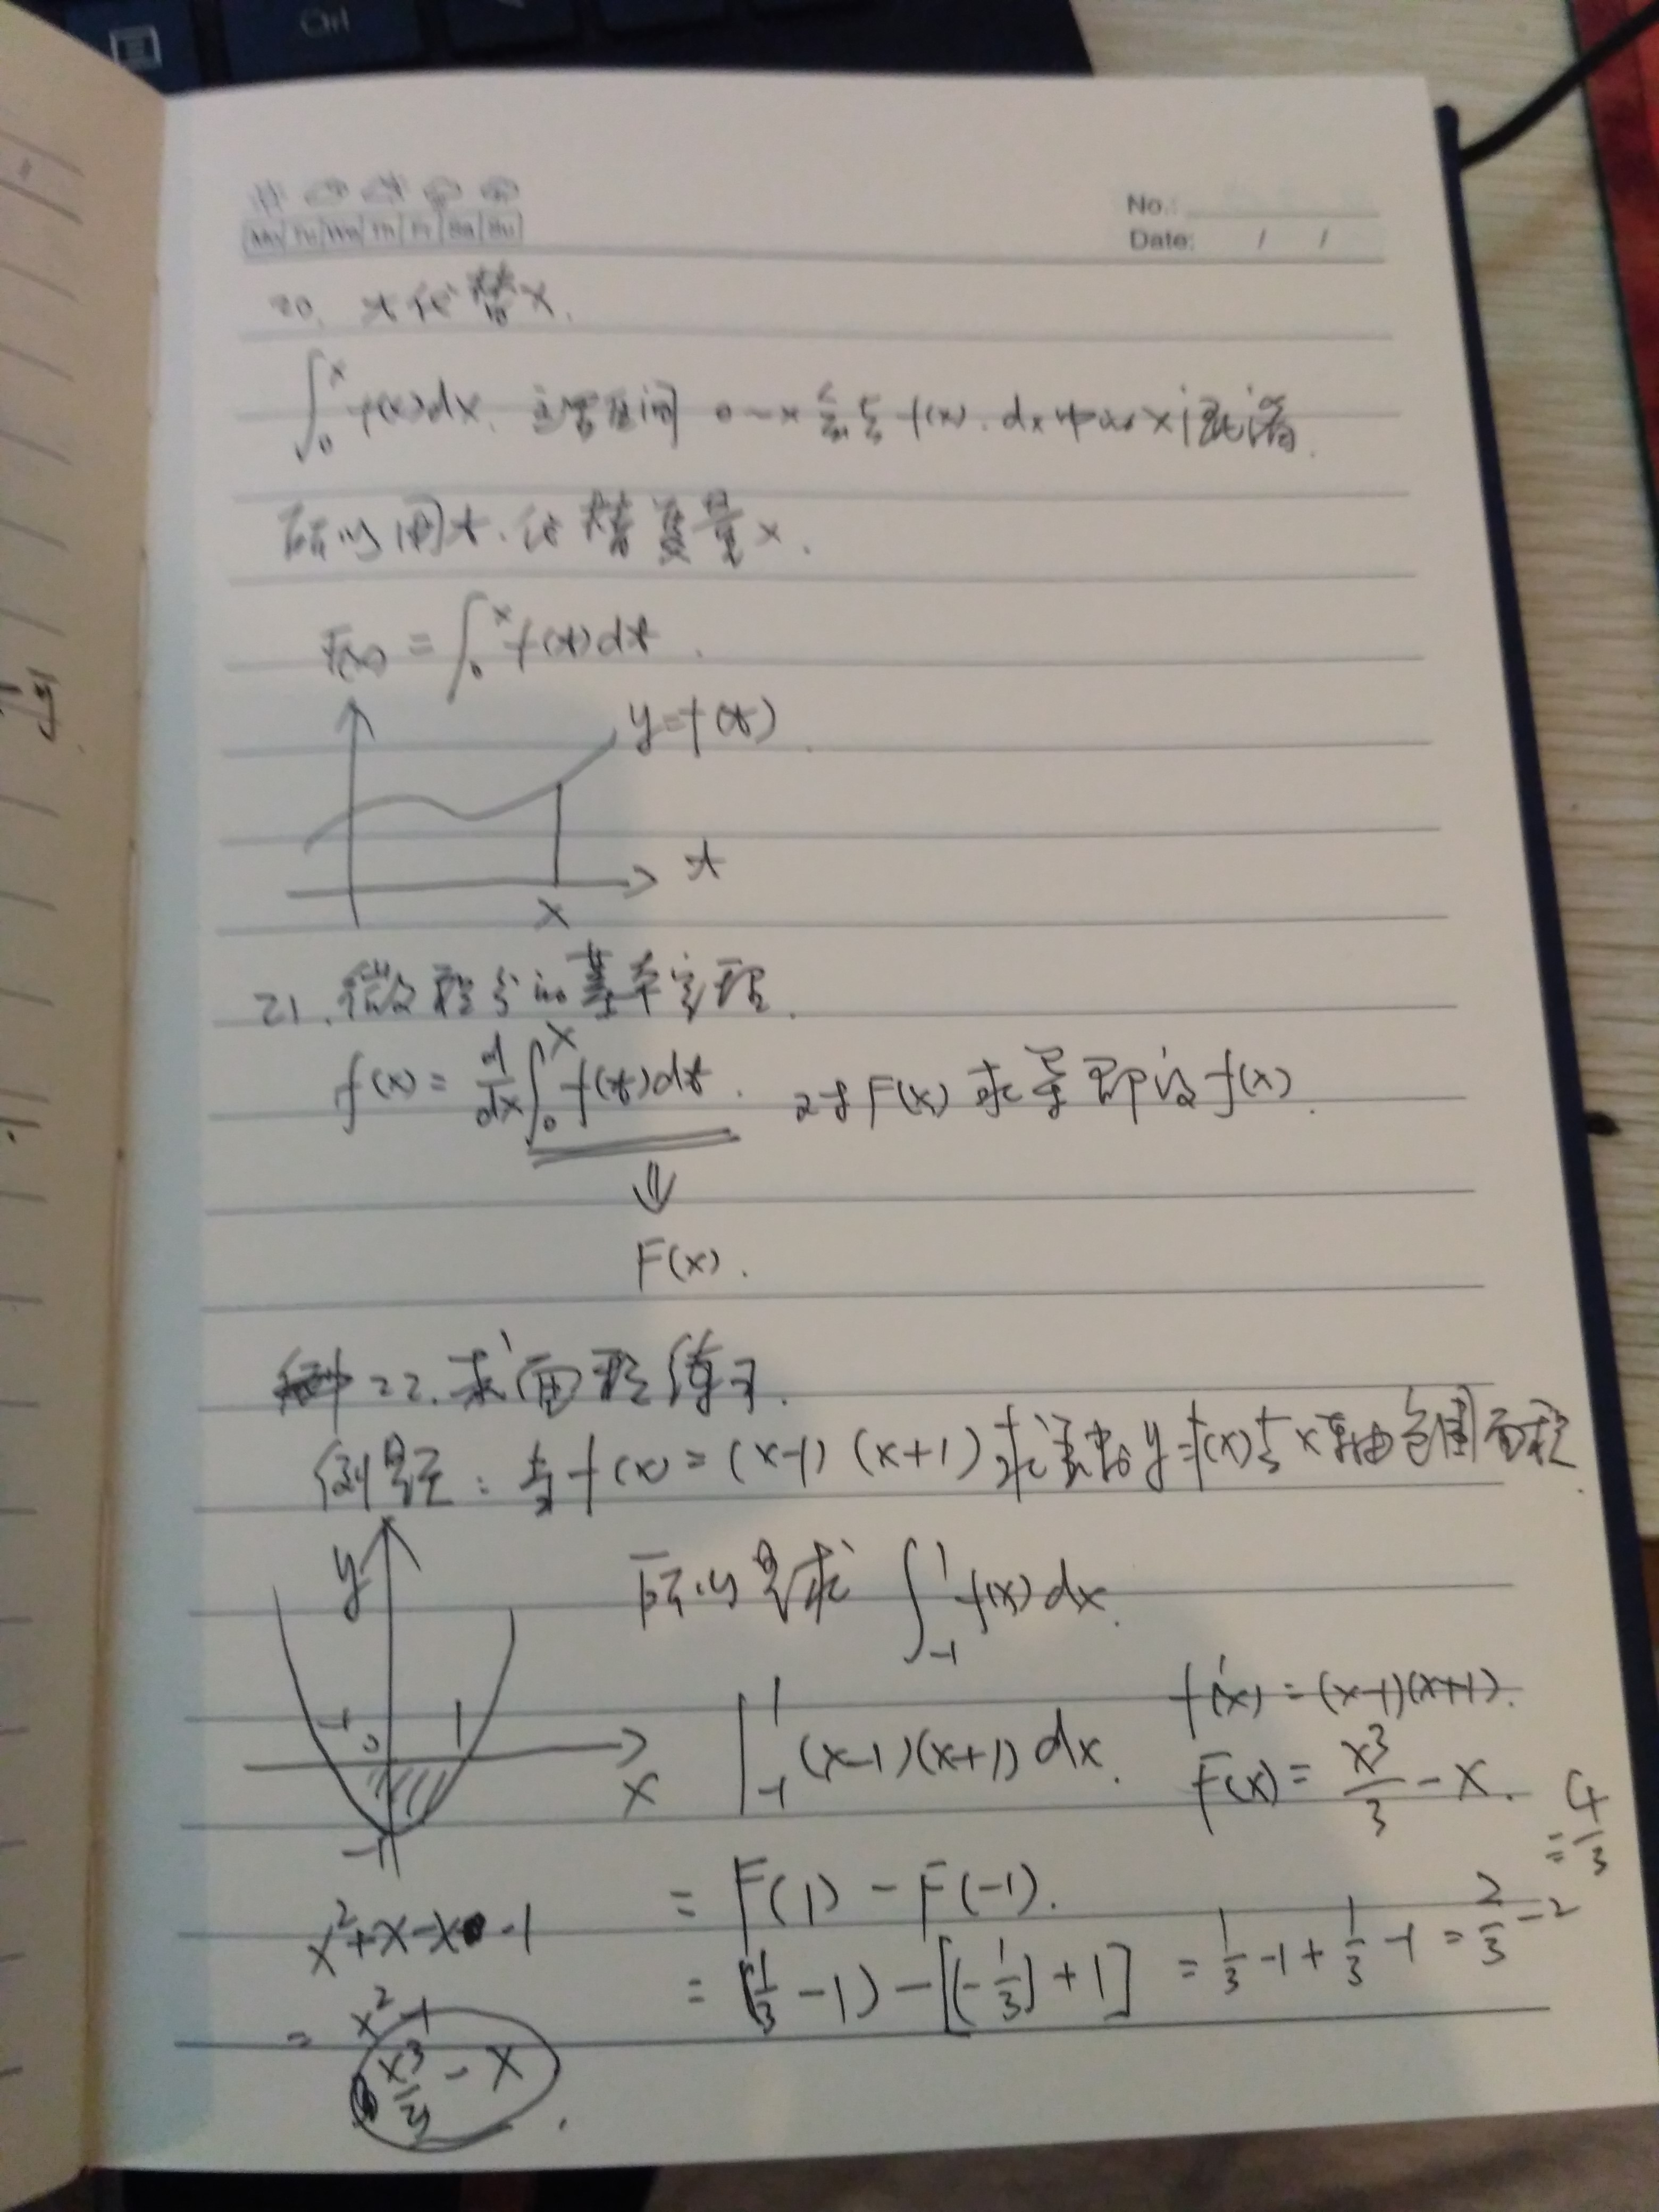 Ctrl
Mo Tu We Th Fr Sa Su
No.:
Date: / /
20. t代替x.
∫₀ˣ f(x)dx. 区间 0~x 与 f(x).dx中的x混淆.
所以用t.代替变量x.
F(x) = ∫₀ˣ f(t)dt.
y=f(t)
t
x
21.微积分的基本定理.
f(x) = d/dx ∫₀ˣ f(t)dt. 对F(x)求导即为f(x).
⇓
F(x).
22.求面积练习.
例题: f(x) = (x-1)(x+1) 求 y=f(x)与x轴包围面积.
y
所以是求 ∫₋₁¹ f(x)dx.
-1 0 1
x
-1
|₋₁¹ (x-1)(x+1)dx.
f(x) = (x-1)(x+1).
F(x) = x³/3 - x.
= F(1) - F(-1).
= (1/3 - 1) - [(-1/3) + 1] = 1/3 - 1 + 1/3 - 1 = 2/3 - 2
= 4/3
x²+x-x-1
= x²-1
x³/3 - x